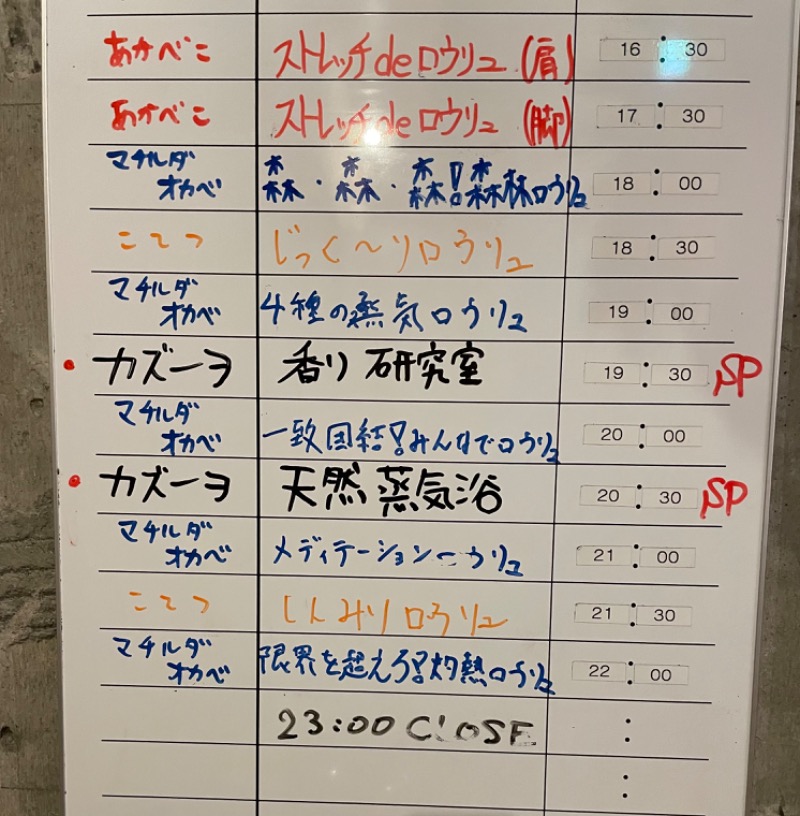 あかべこ ストレッチdeロウリュ(肩) 16:30
あかべこ ストレッチdeロウリュ(脚) 17:30
マチルダ
オカベ 森・森・森!森林ロウリュ 18:00
こてつ じっく〜りロウリュ 18:30
マチルダ
オカベ 4種の蒸気ロウリュ 19:00
・カズーヨ 香り研究室 19:30 SP
マチルダ
オカベ 一致団結!みんなでロウリュ 20:00
・カズーヨ 天然蒸気浴 20:30 SP
マチルダ
オカベ メディテーションロウリュ 21:00
こてつ しんみりロウリュ 21:30
マチルダ
オカベ 限界を超えろ!灼熱ロウリュ 22:00
23:00 CLOSE :
: